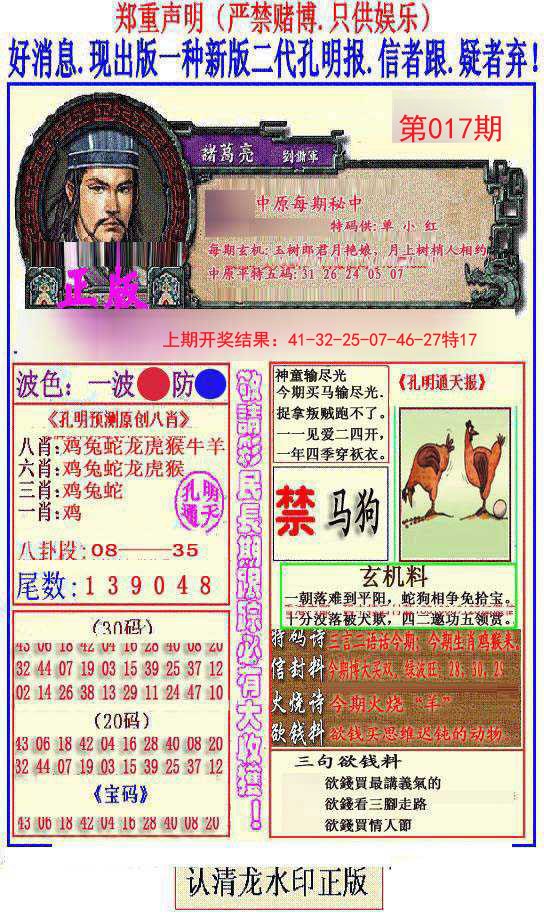 郑重声明（严禁赌博.只供娱乐）
好消息.现出版一种新版二代孔明报.信者跟.疑者弃!
第017期
諸葛亮 劉備軍
中原每期秘中
特码供:单 小 红
每期玄机:玉树郎君月艳娘，月上树梢人相约
中原平特五码:31 26 24 05 07
正版
上期开奖结果：41-32-25-07-46-27特17
波色：一波 防
《孔明预测原创八肖》
八肖:鸡兔蛇龙虎猴牛羊
六肖:鸡兔蛇龙虎猴
三肖:鸡兔蛇
一肖:鸡
孔明
通天
八卦段:08——35
尾数:139048
(30码)
43 06 18 42 04 16 28 40 08 20
32 44 07 19 03 15 39 25 37 12
02 14 26 38 13 29 11 24 47 10
(20码)
43 06 18 42 04 16 28 40 08 20
32 44 07 19 03 15 39 25 37 12
《宝码》
43 06 18 42 04 16 28 40 08 20
敬請彩民長期跟踪必有大收獲！
神童输尽光
今期买马输尽光.
捉拿叛贼跑不了。
一一见爱二四开，
一年四季穿袄衣。
《孔明通天报》
禁 马狗
玄机料
一朝落难到平阳，蛇狗相争免拾宝。
十分没落被犬欺，四二邀功五领赏。
特码诗 三言二语话今期；今期生肖鸡猴来。
信封料 今期博大买双，绿波旺：28、30、29
火烧诗 今期火烧“羊”
欲钱料 欲钱买思维迟钝的动物。
三句欲钱料
欲錢買最講義氣的
欲錢看三腳走路
欲錢買情人節
认清龙水印正版